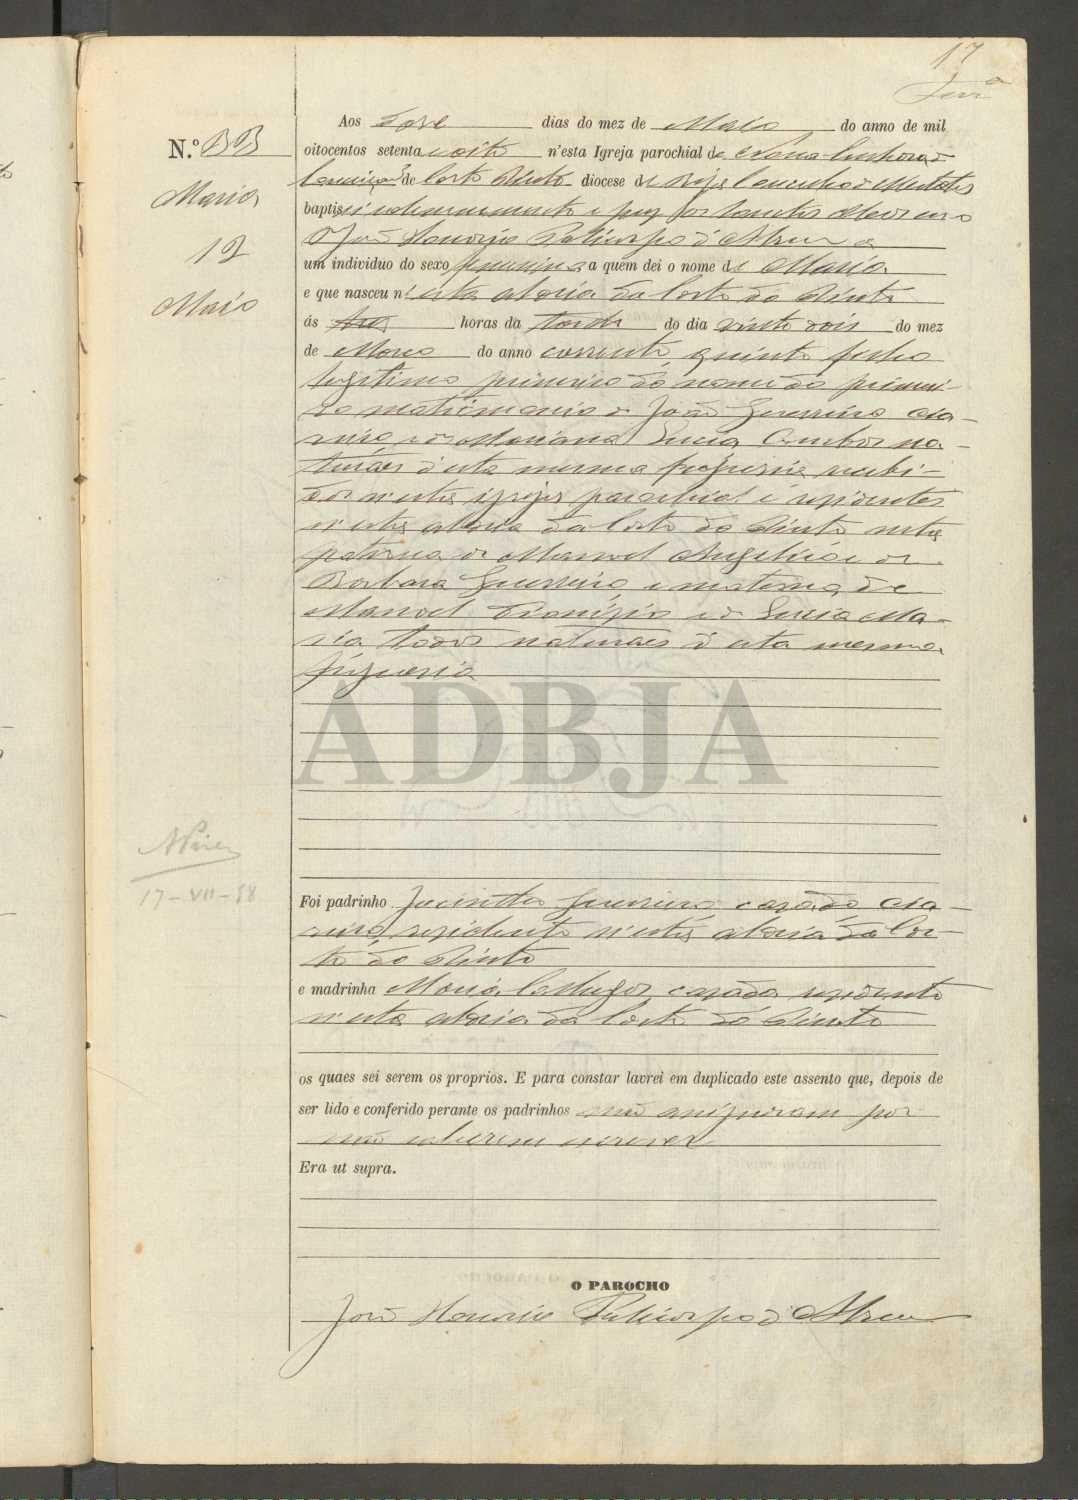 17
N.º 33
Maria
12
Maio
Aos doze dias do mez de Maio do anno de mil
oitocentos setenta e oito n'esta Igreja parochial de Nossa Senhora da
Conceição de Corte do Pinto diocese de Beja Concelho de Mertola
baptisei solemnemente e puz os Santos Oleos eu
P.e João Honorio Policarpo d'Abreu a
um individuo do sexo femenino a quem dei o nome de Maria
e que nasceu n'esta aldeia da Corte do Pinto
ás tres horas da tarde do dia vinte dois do mez
de Março do anno corrente, quinto filho
legitimo primeiro do nome do primei-
ro matrimonio de João Guerreiro
e de Marianna Lucia ambos na-
turaes d'esta mesma freguesia recebi-
dos n'esta igreja parochial e residentes
n'esta aldeia da Corte do Pinto neta
paterna de Manoel e de
Barbara Guerreira e materna de
Manoel Dionizio e de Lucia Ma-
ria todos naturaes d'esta mesma
freguesia
ADBJA
17-VII-98
Foi padrinho Jacintho Guerreiro casado
residente n'esta aldeia da Cor-
te do Pinto
e madrinha Maria casada residente
n'esta aldeia da Corte do Pinto
os quaes sei serem os proprios. E para constar lavrei em duplicado este assento que, depois de
ser lido e conferido perante os padrinhos não assignaram por
não saberem escrever
Era ut supra.
O PAROCHO
João Honorio Policarpo d'Abreu